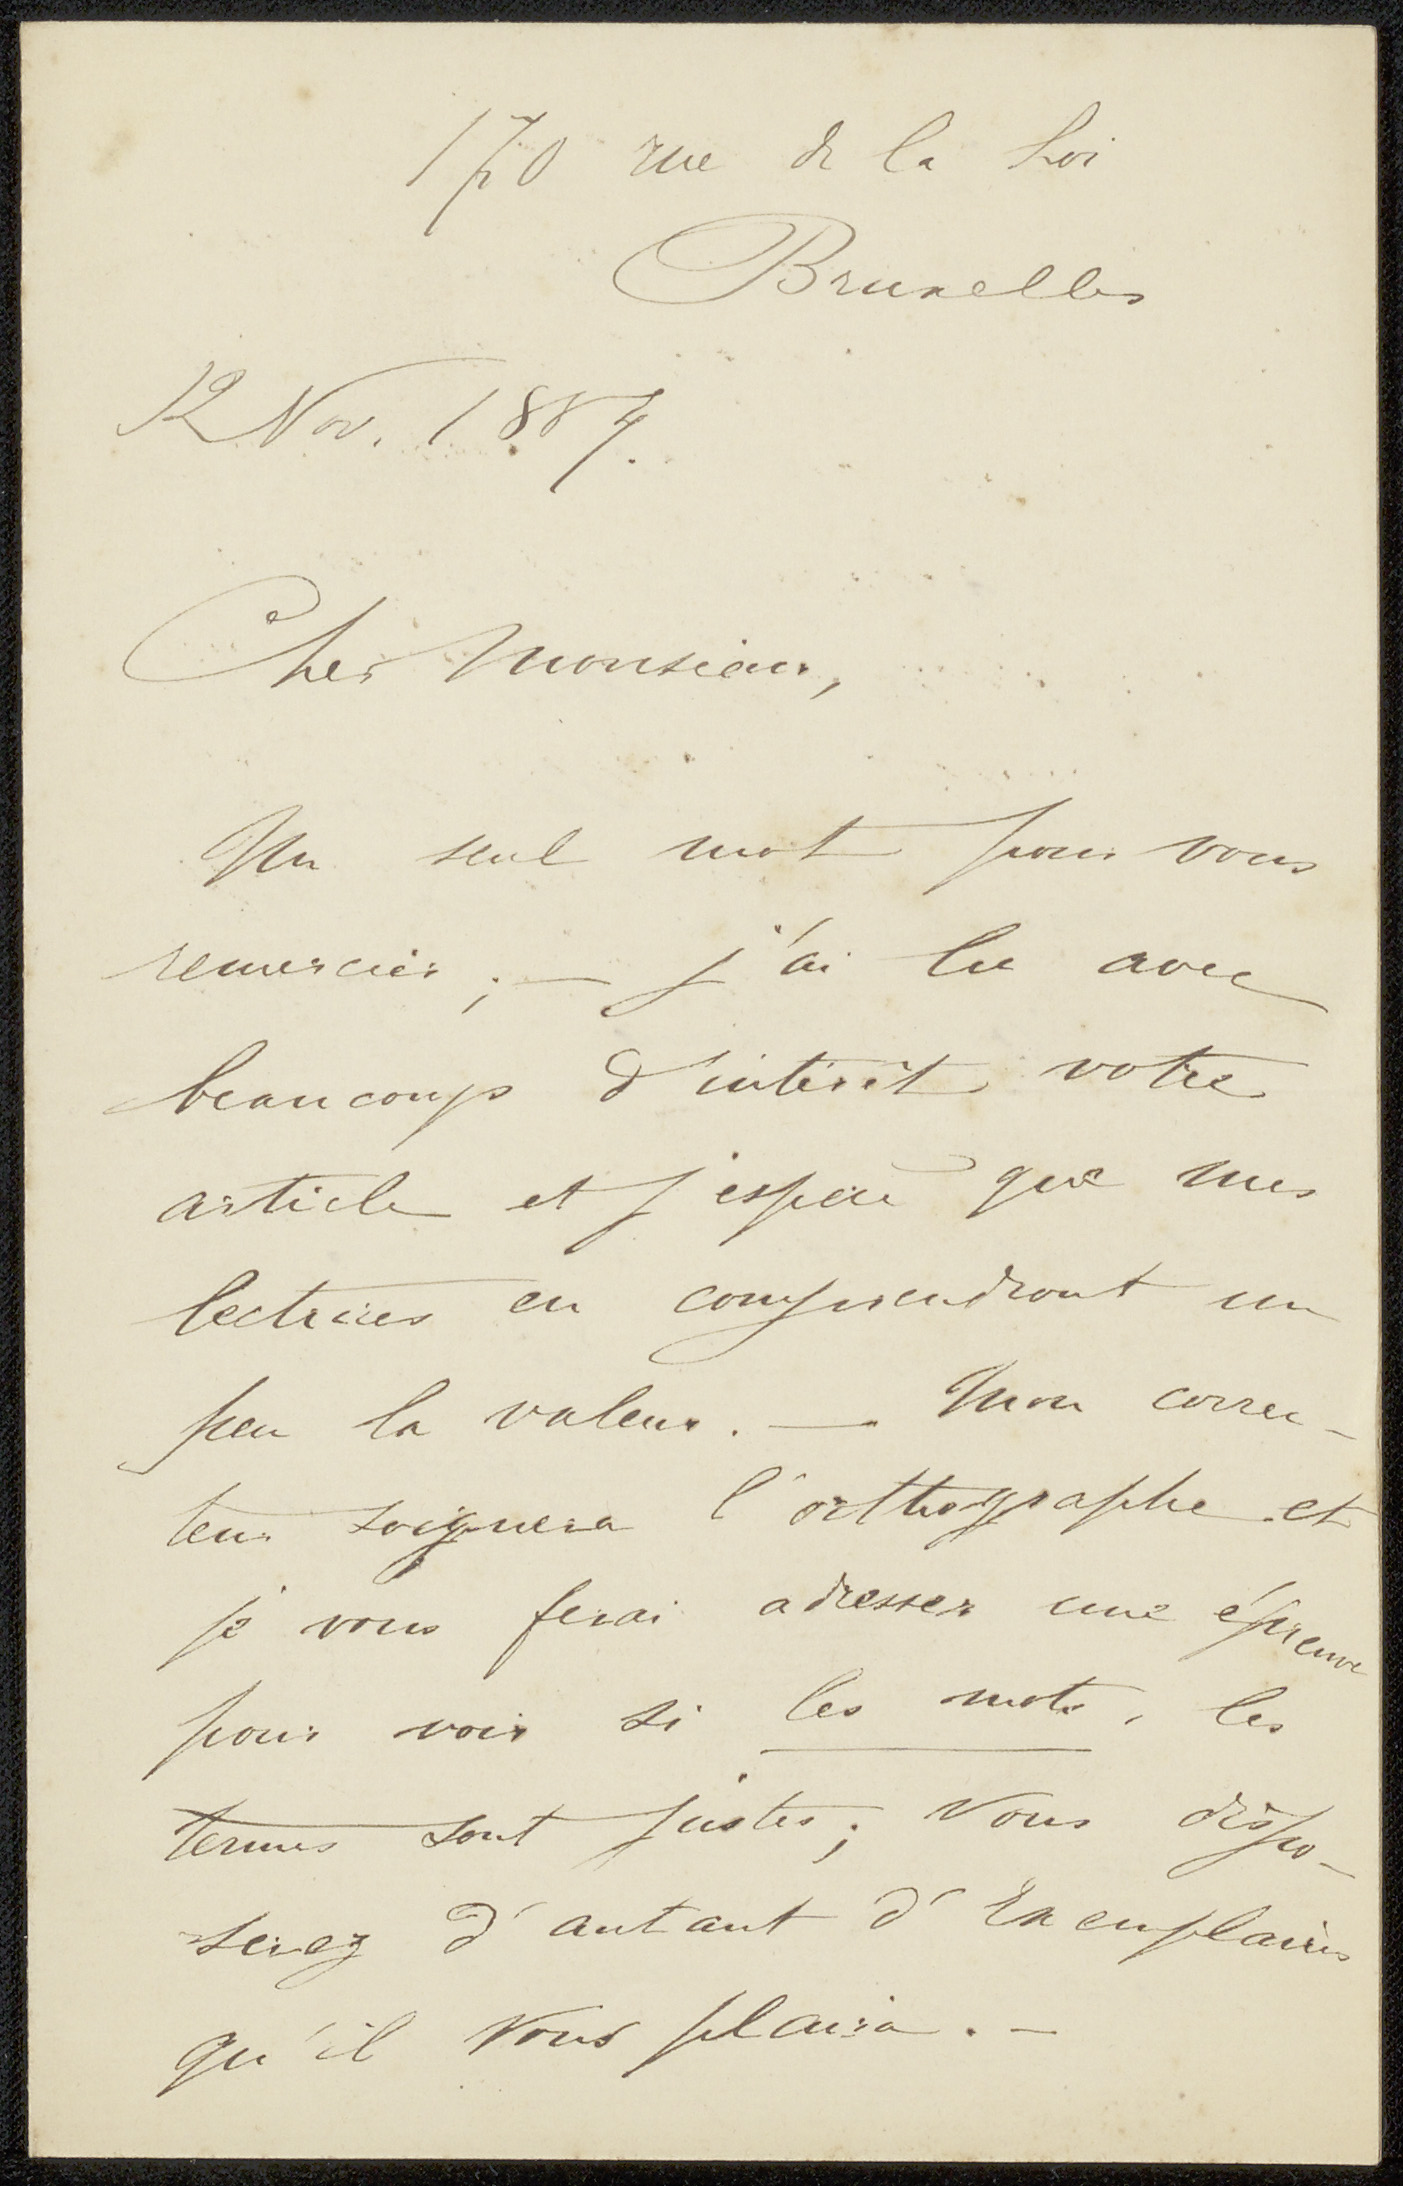 170 rue de la Loi
Bruxelles
12 Nov. 1884.
Cher Monsieur,
Un seul mot pour vous
remercier; — j'ai lu avec
beaucoup d'intérêt votre
article et j'espère que mes
lectrices en comprendront un
peu la valeur. — Mon correc-
teur soignera l'orthographe et
je vous ferai adresser une épreuve
pour voir si les mots, les
termes sont justes; Vous dispo-
serez d'autant d'Exemplaires
qu'il vous plaira. —